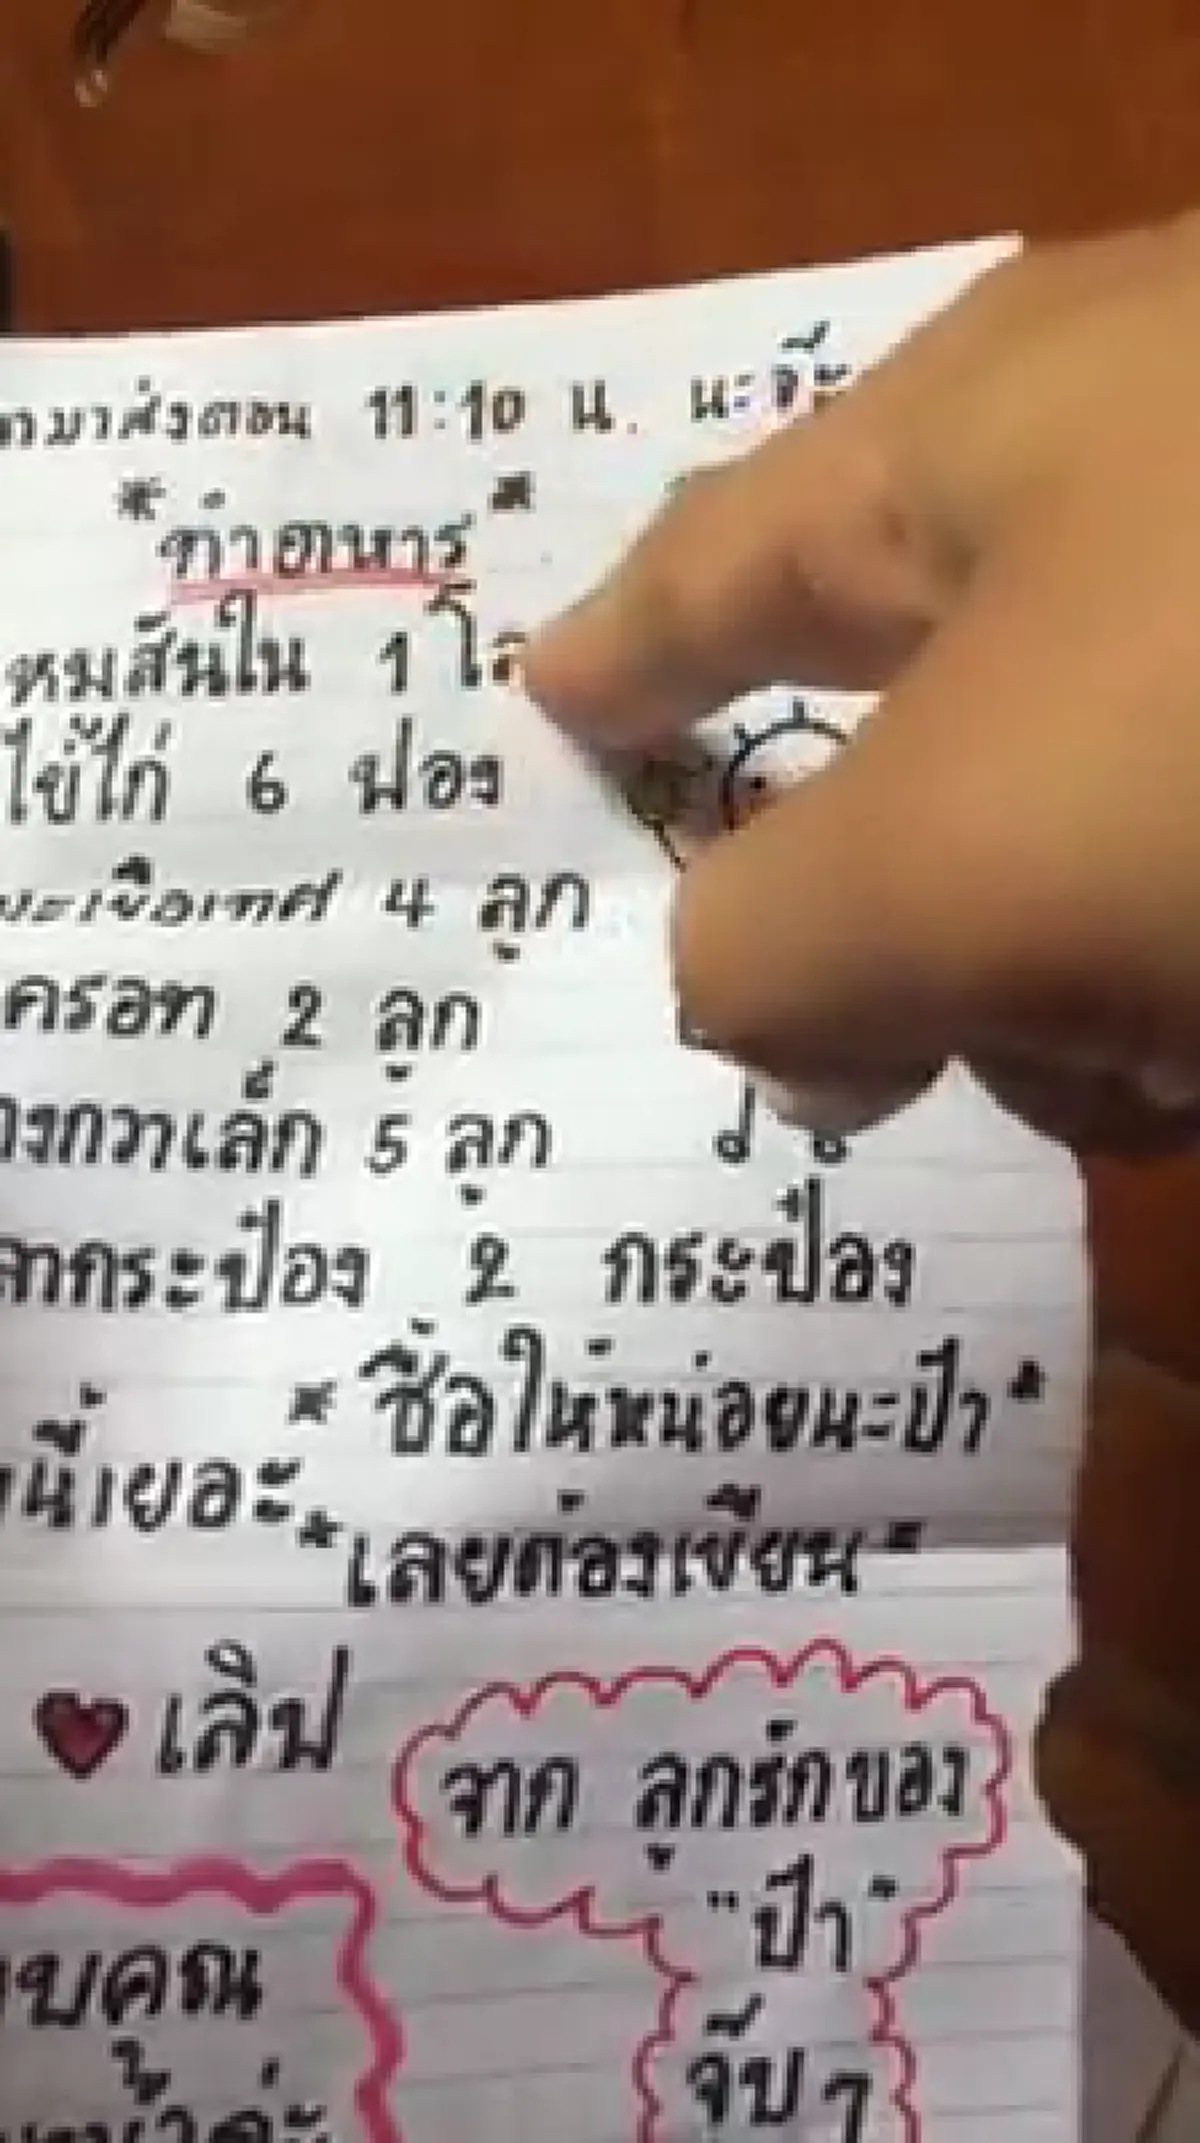 มาส่งตอน 11:10 น. นะจ๊ะ
*ทำอาหาร*
หมูสันใน 1 โล
ไข่ไก่ 6 ฟอง
มะเขือเทศ 4 ลูก
ครอท 2 ลูก
งกวาเล็ก 5 ลูก
ลากระป๋อง 2 กระป๋อง
*ซื้อให้หน่อยนะป๋า*
นี้เยอะ
*เลยต้องเขียน*
เลิฟ
จาก ลูกรักของ
"ป๋า"
จุ๊บๆ
บคุณ